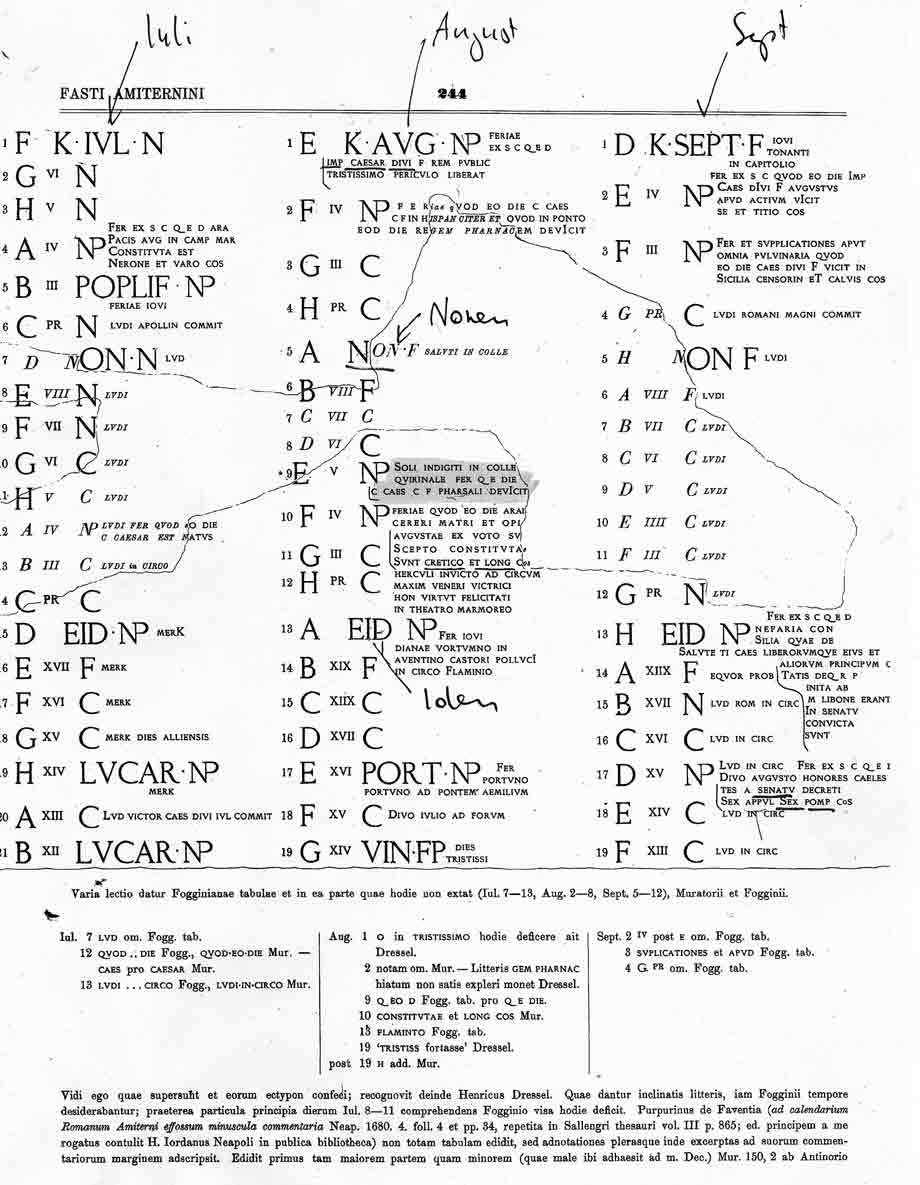 Iuli
August
Sept
FASTI AMITERNINI
244
1 F K·IVL·N
2 G VI N
3 H V N
4 A IV NP FER EX S C Q E D ARA
PACIS AVG IN CAMP MAR
CONSTITVTA EST
NERONE ET VARO COS
5 B III POPLIF·NP
FERIAE IOVI
6 C PR N LVDI APOLLIN COMMIT
7 D NON·N LVD
8 E VIII N LVDI
9 F VII N LVDI
0 G VI C LVDI
1 H V C LVDI
2 A IV NP LVDI FER QVOD EO DIE
C CAESAR EST NATVS
3 B III C LVDI in CIRCO
4 C PR C
5 D EID·NP MERK
6 E XVII F MERK
7 F XVI C MERK
8 G XV C MERK DIES ALLIENSIS
9 H XIV LVCAR·NP
MERK
20 A XIII C LVD VICTOR CAES DIVI IVL COMMIT
21 B XII LVCAR·NP
1 E K·AVG·NP FERIAE
EX S C Q E D
IMP CAESAR DIVI F REM PVBLIC
TRISTISSIMO PERICVLO LIBERAT
2 F IV NP FERiae qVOD EO DIE C CAES
C F IN HISPAN CITER ET QVOD IN PONTO
EOD DIE REGEM PHARNACEM DEVICIT
3 G III C
4 H PR C
Nonen
5 A NON·F SALVTI IN COLLE
6 B VIII F
7 C VII C
8 D VI C
*9 E V NP SOLI INDIGITI IN COLLE
QVIRINALE FER Q E DIE
C CAES C F PHARSALI DEVICIT
10 F IV NP FERIAE QVOD EO DIE ARAE
CERERI MATRI ET OPI
AVGVSTAE EX VOTO SV
11 G III C SCEPTO CONSTITVTA
SVNT CRETICO ET LONG COS
12 H PR C HERCVLI INVICTO AD CIRCVM
MAXIM VENERI VICTRICI
HON VIRTVT FELICITATI
IN THEATRO MARMOREO
13 A EID NP FER IOVI
DIANAE VORTVMNO IN
14 B XIX F AVENTINO CASTORI POLLVCI
IN CIRCO FLAMINIO
15 C XIIX C
Iden
16 D XVII C
17 E XVI PORT·NP FER
PORTVNO
PORTVNO AD PONTEM AEMILIVM
18 F XV C DIVO IVLIO AD FORVM
19 G XIV VIN·FP DIES
TRISTISSI
1 D K·SEPT·F IOVI
TONANTI
IN CAPITOLIO
FER EX S C QVOD EO DIE IMP
2 E IV NP CAES DIVI F AVGVSTVS
APVD ACTIVM VICIT
SE ET TITIO COS
3 F III NP FER ET SVPPLICATIONES APVT
OMNIA PVLVINARIA QVOD
EO DIE CAES DIVI F VICIT IN
SICILIA CENSORIN ET CALVIS COS
4 G PR C LVDI ROMANI MAGNI COMMIT
5 H NON F LVDI
6 A VIII F LVDI
7 B VII C LVDI
8 C VI C LVDI
9 D V C LVDI
10 E IIII C LVDI
11 F III C LVDI
12 G PR N LVDI
FER EX S C Q E D
13 H EID NP NEFARIA CON
SILIA QVAE DE
SALVTE TI CAES LIBERORVMQVE EIVS ET
14 A XIIX F EQVOR PROB ALIORVM PRINCIPVM C
TATIS DEQ R P
INITA AB
15 B XVII N LVD ROM IN CIRC M LIBONE ERANT
IN SENATV
CONVICTA
16 C XVI C LVD IN CIRC SVNT
17 D XV NP LVD IN CIRC FER EX S C Q E I
DIVO AVGVSTO HONORES CAELES
TES A SENATV DECRETI
18 E XIV C SEX APPVL SEX POMP COS
LVD IN CIRC
19 F XIII C LVD IN CIRC
Varia lectio datur Fogginianae tabulae et in ea parte quae hodie non extat (Iul. 7—13, Aug. 2—8, Sept. 5—12), Muratorii et Fogginii.
Iul. 7 LVD om. Fogg. tab.
12 QVOD .. DIE Fogg., QVOD·EO·DIE Mur. —
CAES pro CAESAR Mur.
13 LVDI ... CIRCO Fogg., LVDI·IN·CIRCO Mur.
Aug. 1 O in TRISTISSIMO hodie deficere ait
Dressel.
2 notam om. Mur. — Litteris GEM PHARNAC
hiatum non satis expleri monet Dressel.
9 Q_EO D Fogg. tab. pro Q_E DIE.
10 CONSTITVTAE et LONG COS Mur.
13 FLAMINTO Fogg. tab.
19 'TRISTISS fortasse' Dressel.
post 19 H add. Mur.
Sept. 2 IV post E om. Fogg. tab.
3 SVPLICATIONES et APVD Fogg. tab.
4 G PR om. Fogg. tab.
Vidi ego quae supersunt et eorum ectypon confeci; recognovit deinde Henricus Dressel. Quae dantur inclinatis litteris, iam Fogginii tempore
desiderabantur; praeterea particula principia dierum Iul. 8—11 comprehendens Fogginio visa hodie deficit. Purpurinus de Faventia (ad calendarium
Romanum Amiterni effossum minuscula commentaria Neap. 1680. 4. foll. 4 et pp. 34, repetita in Sallengri thesauri vol. III p. 865; ed. principem a me
rogatus contulit H. Iordanus Neapoli in publica bibliotheca) non totam tabulam edidit, sed adnotationes plerasque inde excerptas ad suorum commen-
tariorum marginem adscripsit. Edidit primus tam maiorem partem quam minorem (quae male ibi adhaesit ad m. Dec.) Mur. 150, 2 ab Antinorio